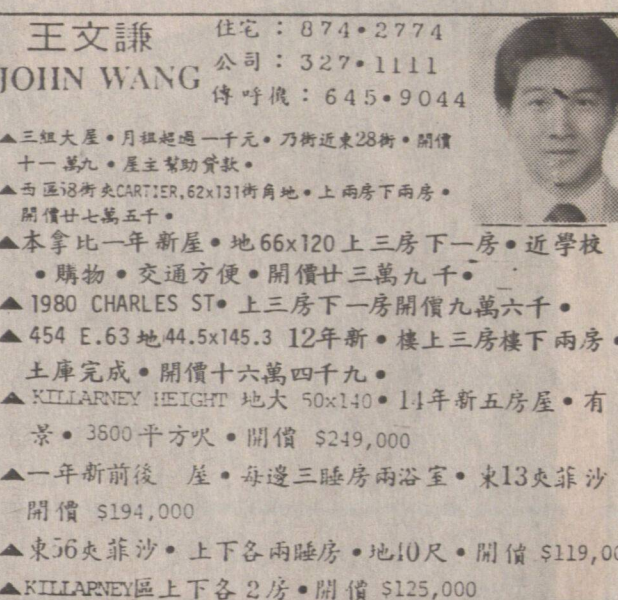 王文謙
JOHN WANG
住宅：874•2774
公司：327•1111
傳呼機：645•9044
▲三組大屋•月租超過一千元•乃街近東28街•開價
十一萬九•屋主幫助貸款•
▲西區18街夾CARTIER,62x131街角地•上兩房下兩房•
開價廿七萬五千•
▲本拿比一年新屋•地66x120上三房下一房•近學校
•購物•交通方便•開價廿三萬九千•
▲1980 CHARLES ST•上三房下一房開價九萬六千•
▲454 E.63地44.5x145.3 12年新•樓上三房樓下兩房•
土庫完成•開價十六萬四千九•
▲KILLARNEY HEIGHT 地大 50x140•14年新五房屋•有
景•3800平方呎•開價 $249,000
▲一年新前後 屋•每邊三睡房兩浴室•東13夾菲沙
開價 $194,000
▲東56夾菲沙•上下各兩睡房•地40尺•開價
▲KILLARNEY區上下各2房•開價 $125,000